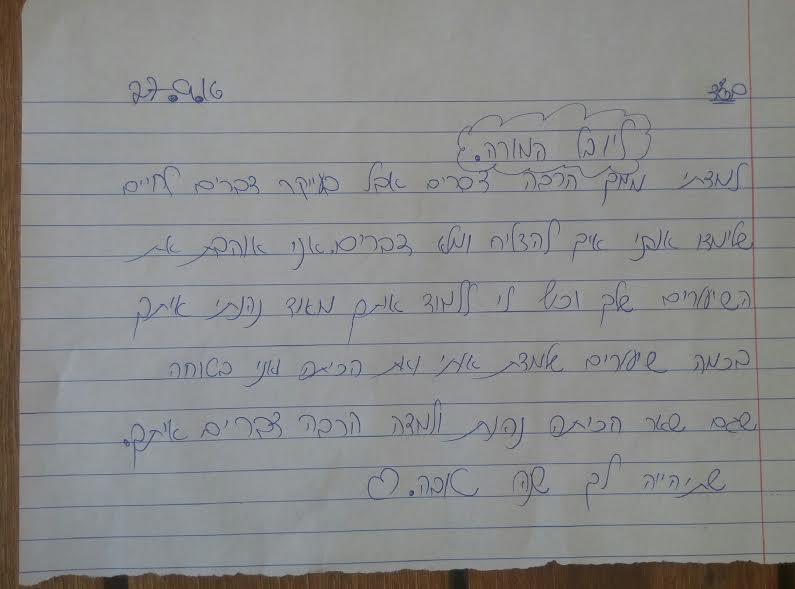 בס"ד
ליובל המורה.
למדתי ממך הרבה דברים אבל בעייקר דברים לחיים
שלימדו אותי איך להצליח ומלא דברים. אני אוהבת את
השיעורים שלך וכיף לי ללמוד איתך מאוד נהנתי איתך
בכמה שיעורים שלמדת אותי ואת הכיתה ואני בטוחה
שגם שאר הכיתה נהנת ולמדה הרבה דברים איתך.
שתיהייה לך שנה טובה.